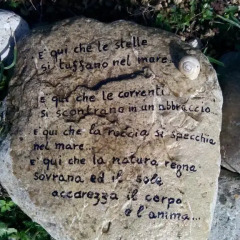 E' qui che le stelle
si tuffano nel mare...
E' qui che le correnti
si scontrano in un abbraccio...
E' qui che la roccia si specchia
nel mare...
E' qui che la natura regna
sovrana ed il sole
accarezza il corpo
e l'anima...